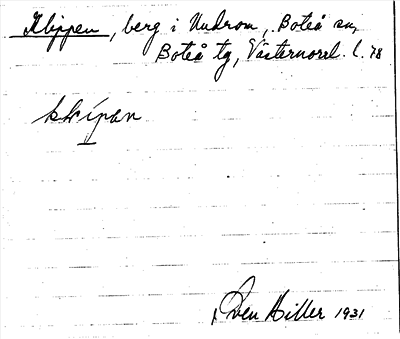 Klippen, berg i Undrom, Boteå sn,
Boteå tg, Västernorrl. l. 78
kkípan
Sven Hiller 1931